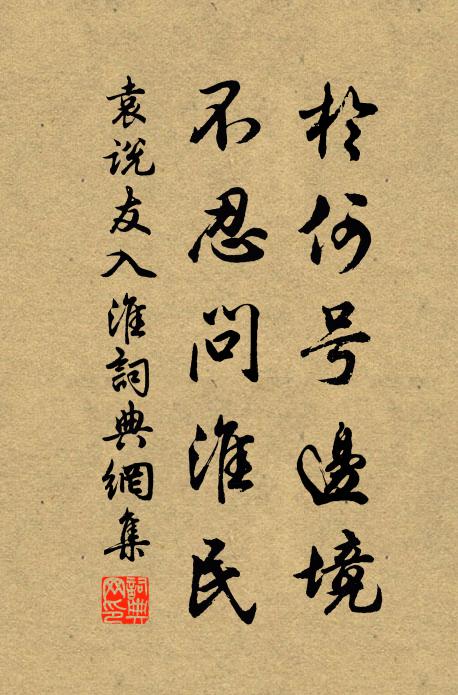 於何号邊境
不忍問淮民
袁说友入淮詞典網集
詞典
网印